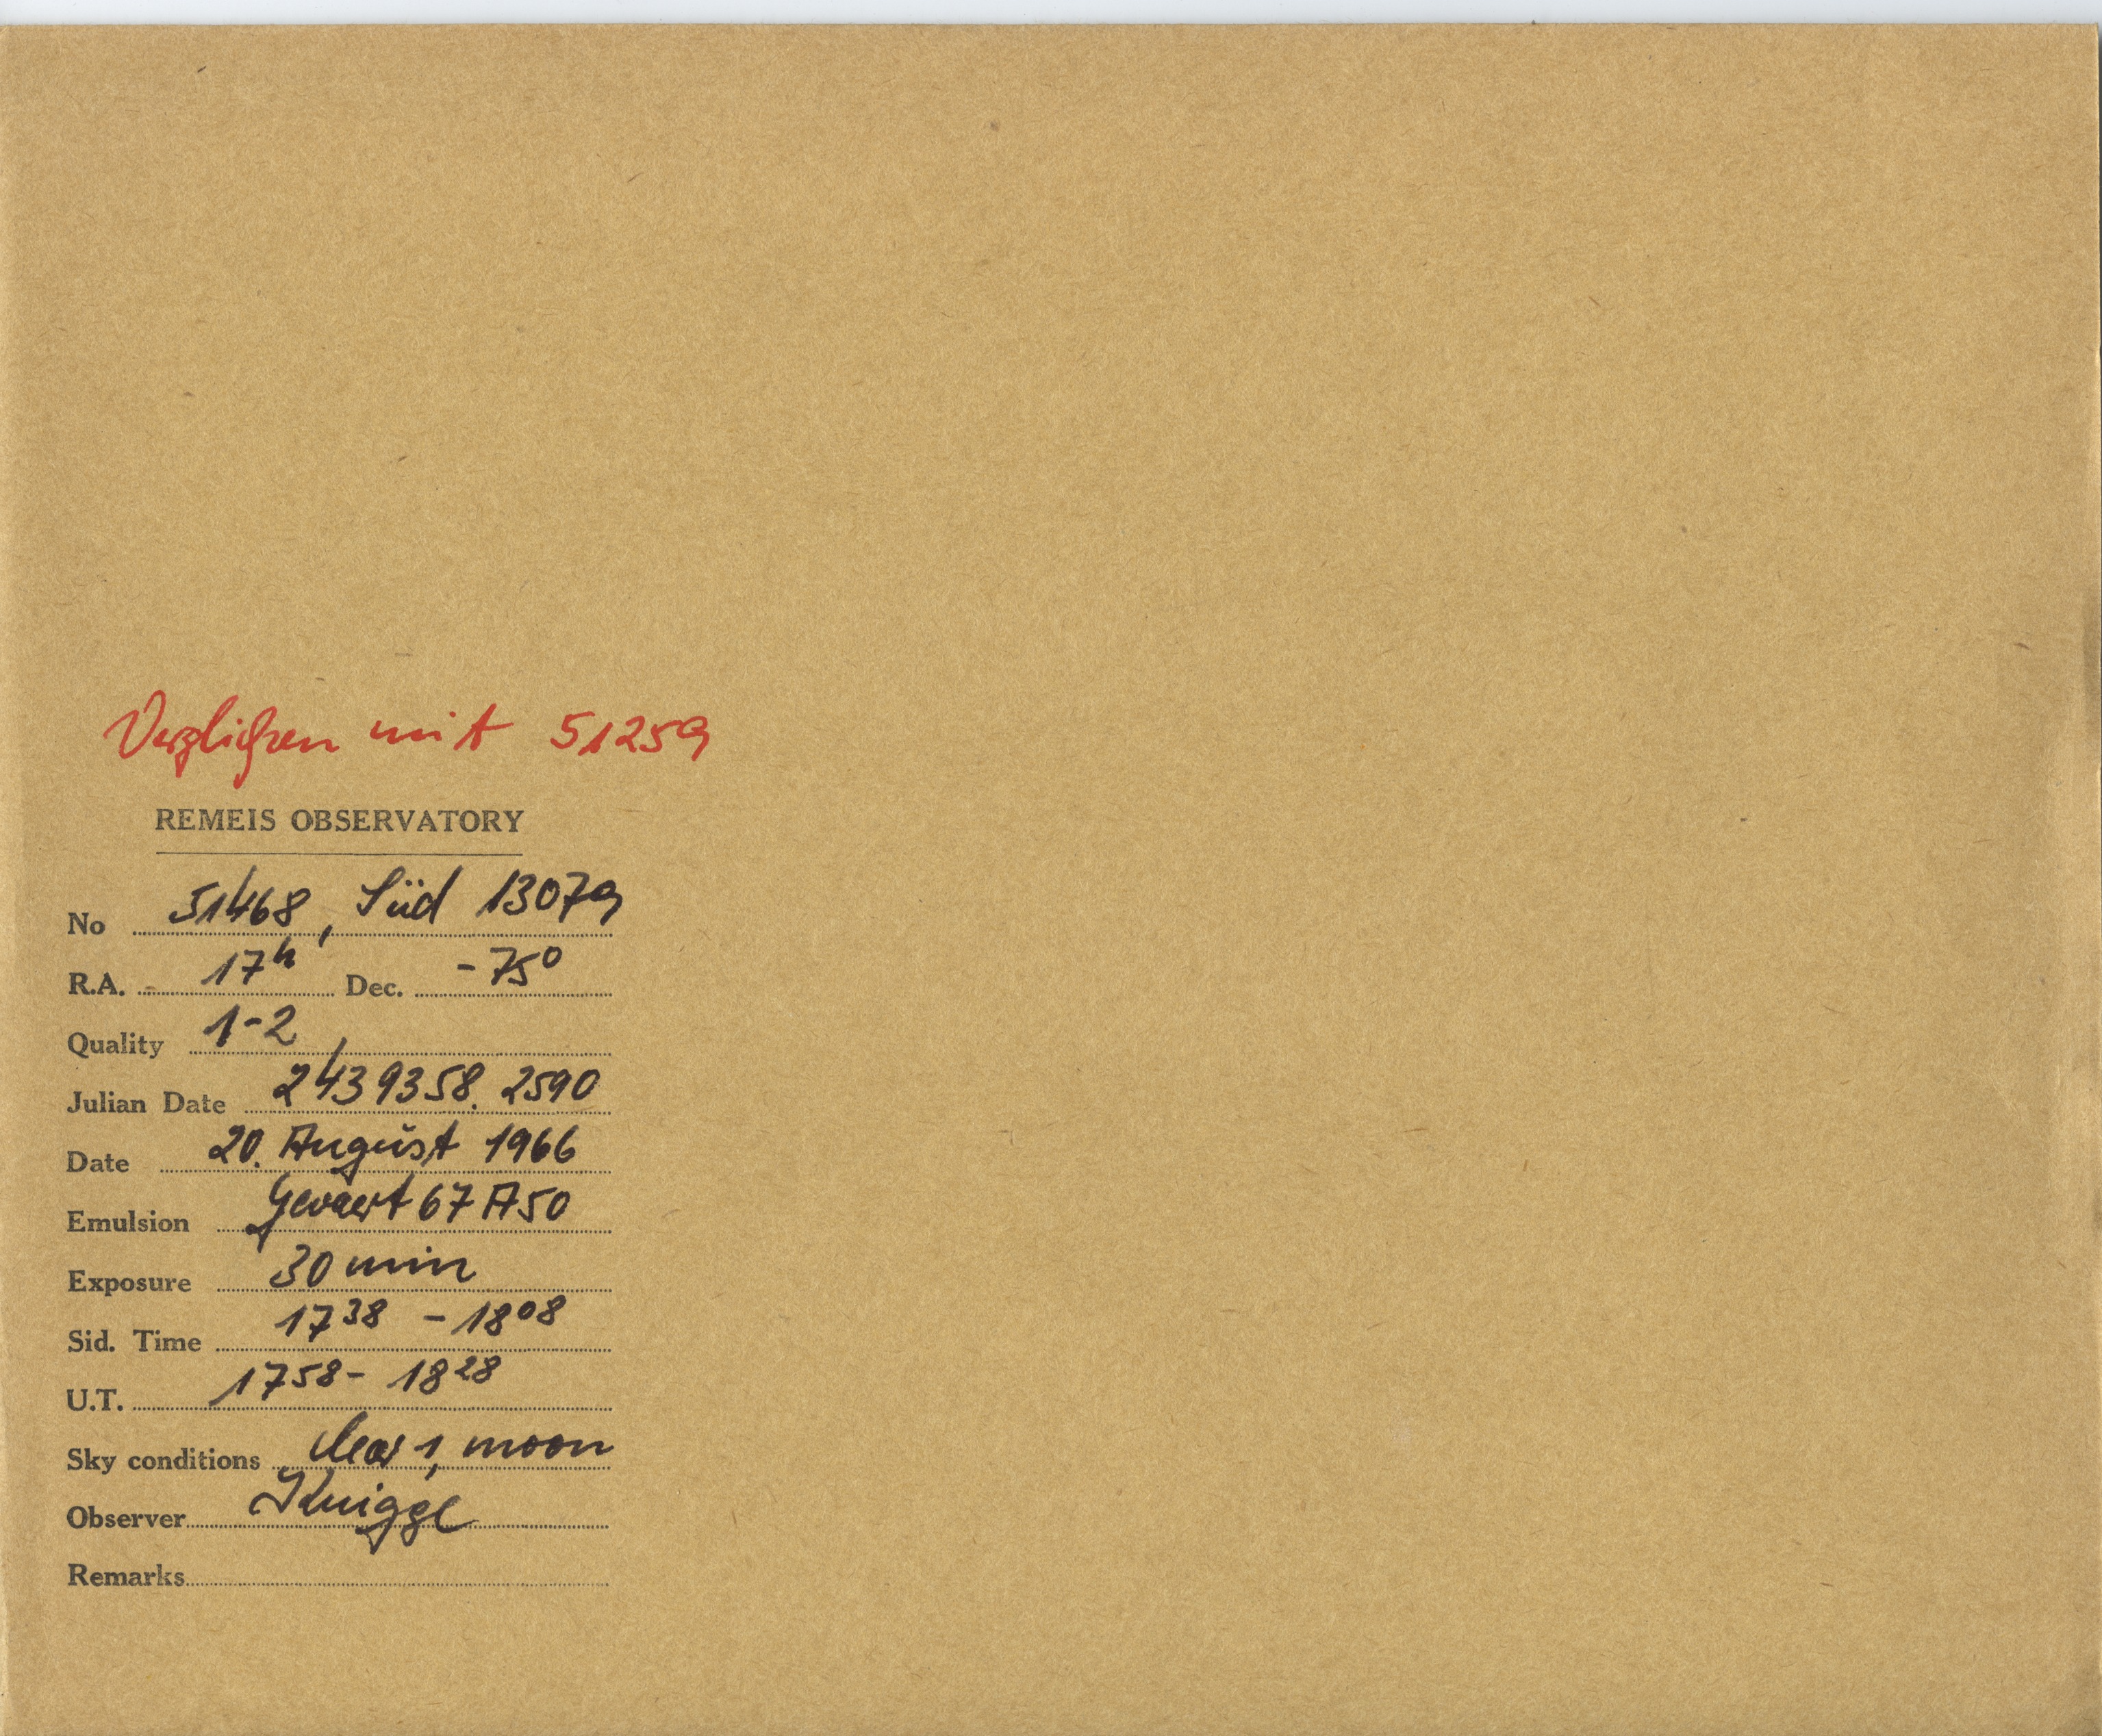 Verglichen mit 51259
REMEIS OBSERVATORY
No 51468, Süd 13079
R.A. 17h Dec. -75°
Quality 1-2
Julian Date 2439358.2590
Date 20. August 1966
Emulsion Gevaert 67A50
Exposure 30 min
Sid. Time 17 38 - 18 08
U.T. 17 58 - 18 28
Sky conditions clear 1, moon
Observer Knigge
Remarks